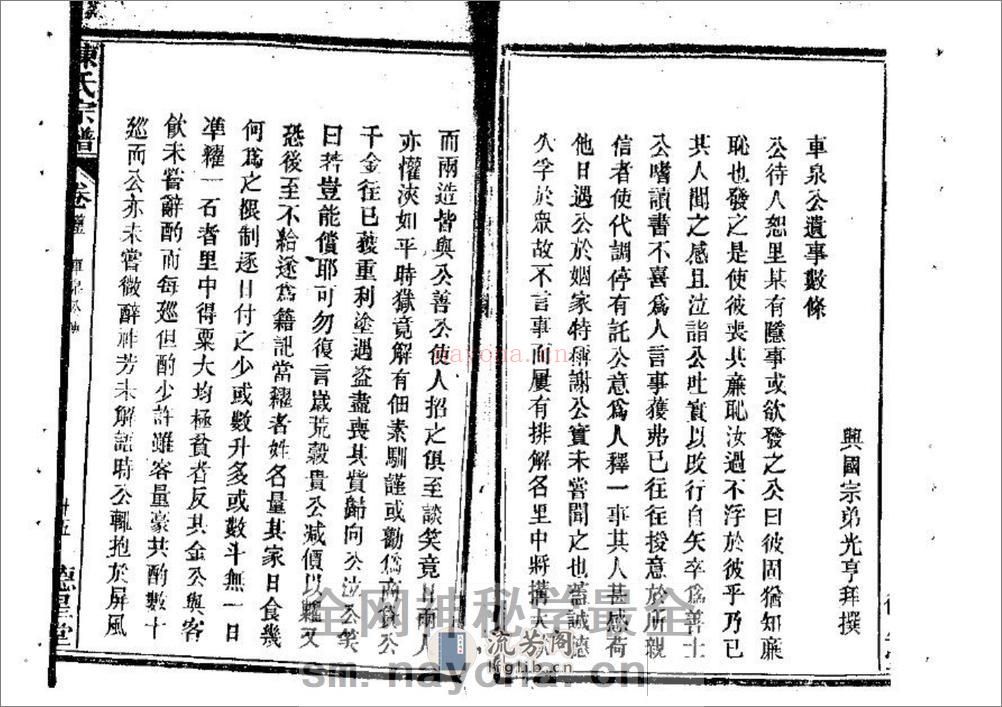 車泉公遺事數條
興國宗弟光亨拜撰
公待人恕里某有隱事或欲發之公曰彼固猶知廉
恥也發之是使彼喪其廉恥汝過不浮於彼乎乃已
其人聞之感且泣詣公吐實以改行自矢卒爲善士
公嗜讀書不喜爲人言事獲弗已往往授意於所親
信者使代調停有託公意爲人釋一事其人甚感荷
他日遇公於姻家特稱謝公實未嘗聞之也蓋誠德
久孚於衆故不言事而屢有排解名里中將搆大獄
而兩造皆與公善公使人招之俱至談笑竟日兩人
亦懽浹如平時獄竟解有佃素馴謹或勸爲商貸公
千金往已獲重利塗遇盜盡喪其貲歸向公泣公笑
曰若豈能償耶可勿復言歲荒穀貴公減價以糶又
恐後至不給遂爲籍記當糶者姓名量其家日食幾
何爲之限制逐日付之少或數升多或數斗無一日
準糶一石者里中得粟大均極貧者反其金公與客
飲未嘗辭酌而每巡但酌少許雖客量豪共酌數十
巡而公亦未嘗微醉祚芳未解語時公輒抱於屏風
陳氏宗譜
卷
德星堂
全网神秘学最全
nayona.cn
流芳阁
lfglib.cn
sm.nayona.cn